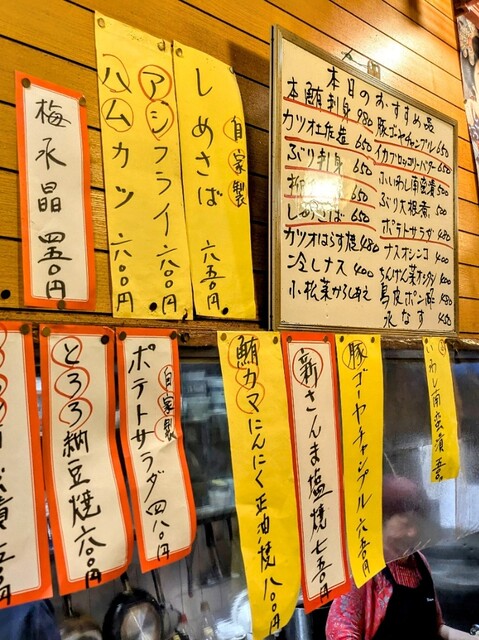 梅水晶 四五〇円
アジフライ 六〇〇円
ハムカツ
自家製
しめさば 六五〇円
本日のおすすめ品
本鮪刺身 980
カツオ土佐造 650
ぶり刺身 650
650
しめさば 650
カツオはらす焼 480
冷しナス 400
小松菜からしあえ
豚ゴーヤチャンプル 650
イカブロッコリーバター 650
いわし南蛮漬 500
ぶり大根煮 500
ポテトサラダ 480
ナスオシンコ 400
鳥皮ポン酢
水なす 450
とろろ納豆焼 六〇〇円
自家製
ポテトサラダ 四八〇円
鮪カマにんにく正油焼 八〇〇円
新さんま塩焼 七五〇円
豚ゴーヤチャンプル 六五〇円
いわし南蛮漬